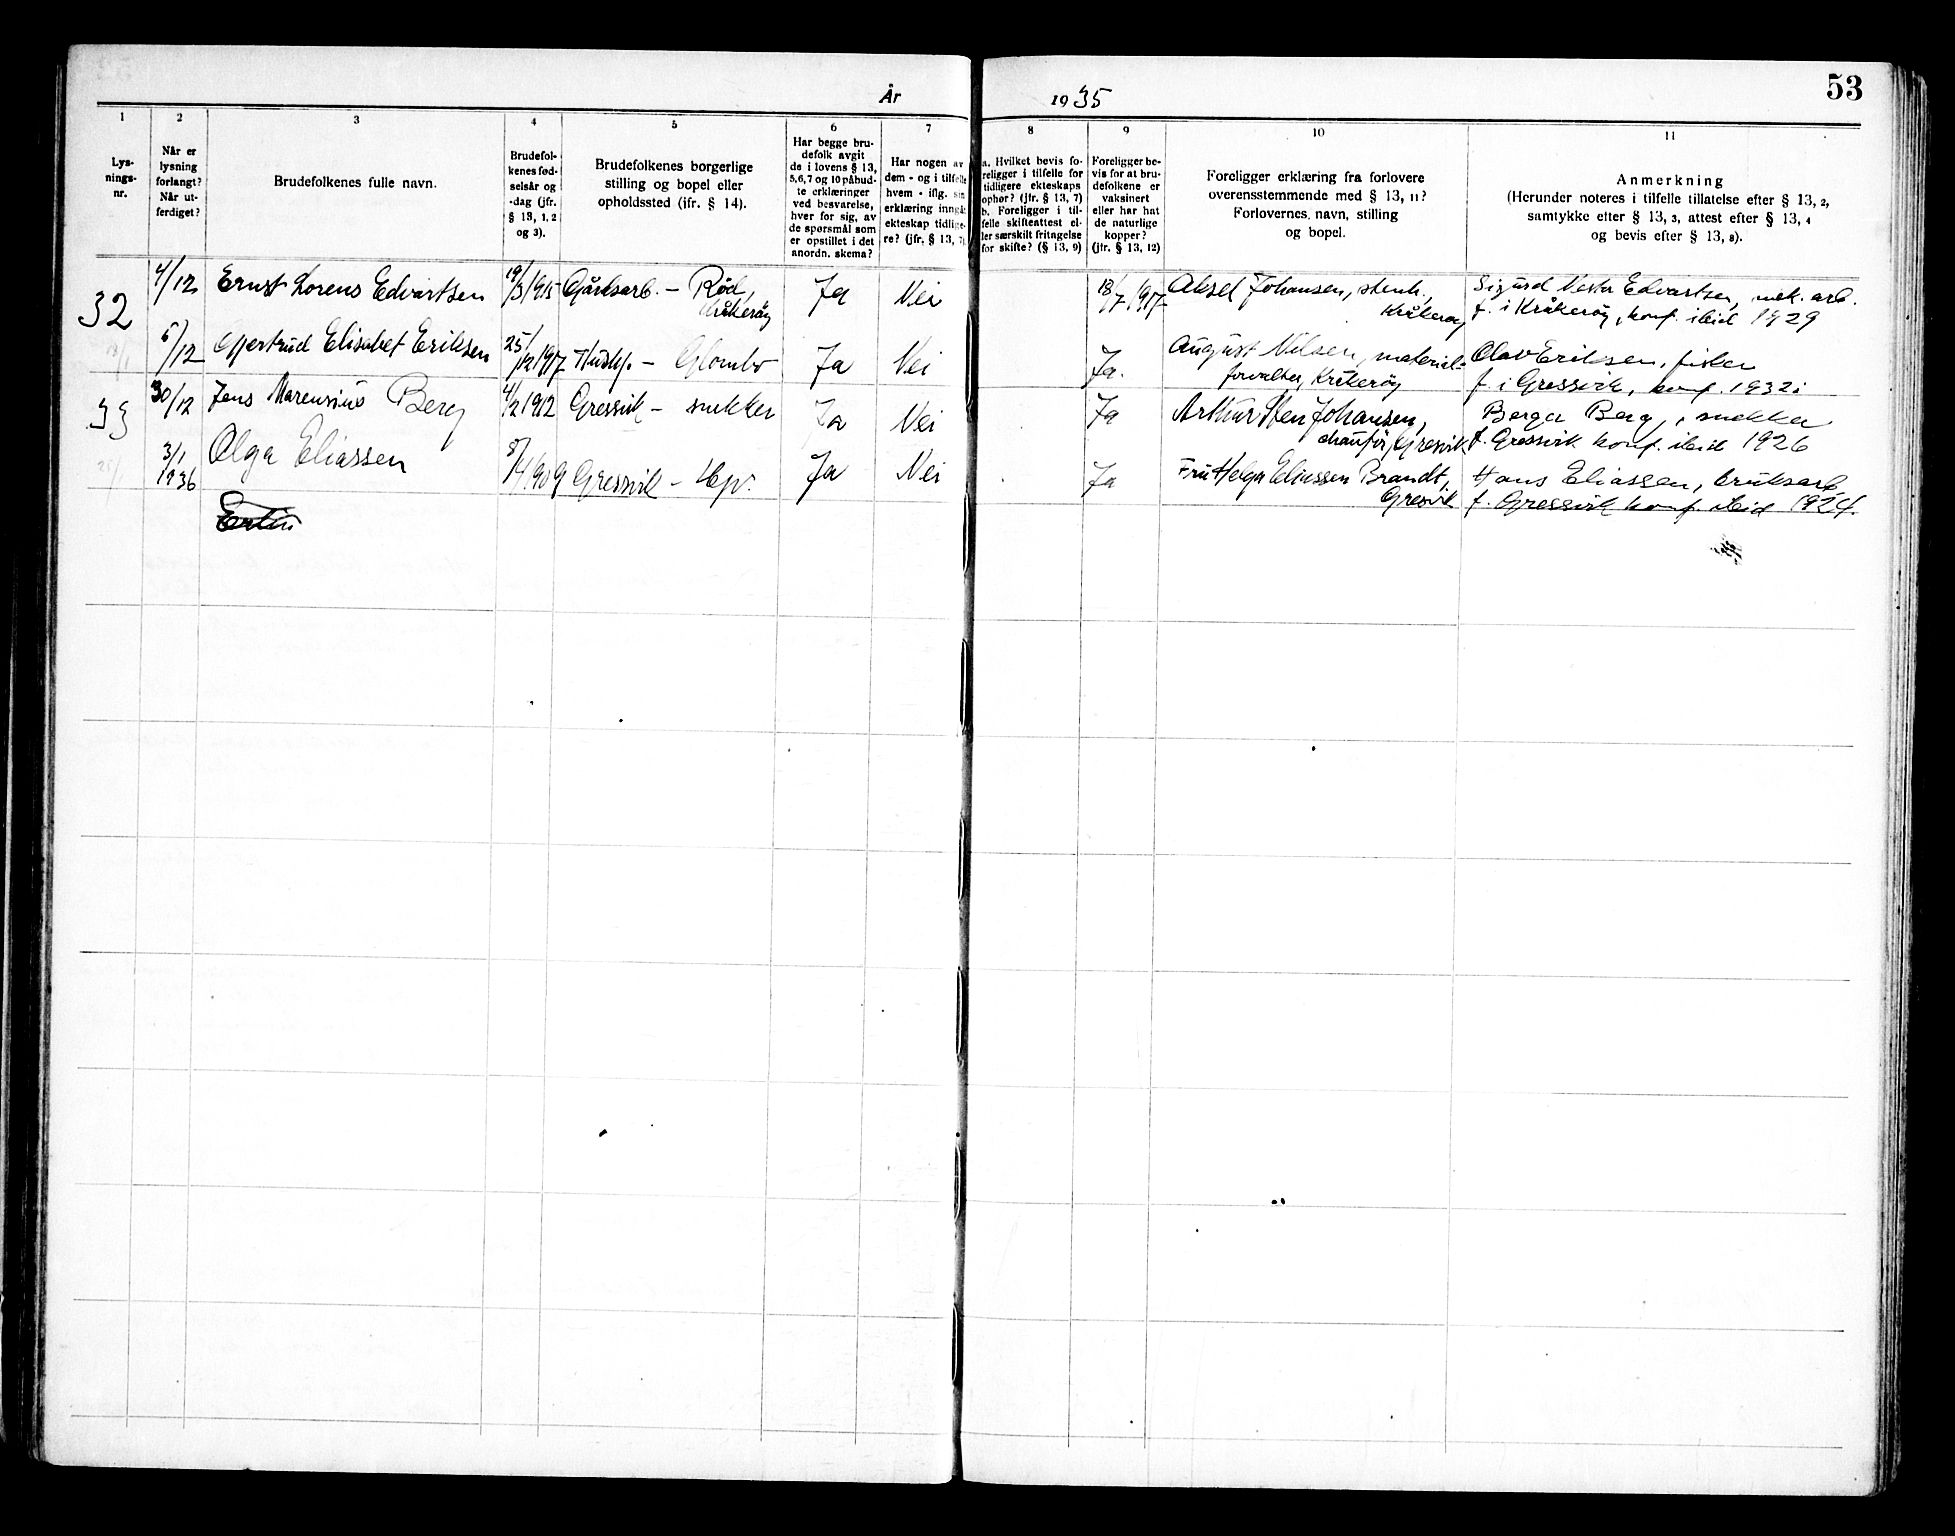 53
År 1935
1 2 3 4 5 6 7 8 9 10 11
Lys-
nings-
nr.
Når er
lysning
forlangt?
Når ut-
ferdiget?
Brudefolkenes fulle navn.
Brudefol-
kenes fød-
selsår og
-dag (jfr.
§ 13, 1, 2
og 3).
Brudefolkenes borgerlige
stilling og bopel eller
opholdssted (ifr. § 14).
Har begge bru-
defolk avgit
de i lovens § 13,
5,6,7 og 10 påbud-
te erklæringer
ved besvarelse,
hver for sig, av
de spørsmål som
er opstillet i det
anordn. skema?
Har nogen av
dem - og i tilfelle
hvem - iflg. sin
erklæring inngå
ekteskap tidlige-
re? (jfr. § 13, 7).
a. Hvilket bevis fo-
religger i tilfelle for
tidligere ekteskaps
ophør? (jfr. § 13, 7)
b. Foreligger i til-
felle skifteattest el-
ler særskilt fritagelse
for skifte? (§ 13, 9)
Foreligger be-
vis for at bru-
defolkene er
vaksinert
eller har hat
de naturlige
kopper?
(jfr. § 13, 12)
Foreligger erklæring fra forlovere
overensstemmende med § 13, 11?
Forlovernes navn, stilling
og bopel.
Anmerkning
(Herunder noteres i tilfelle tillatelse efter § 13, 2,
samtykke efter § 13, 3, attest efter § 13, 4
og bevis efter § 13, 8).
32
4/12 Ernst Lorens Edvartsen 19/3 1915 Gårdsarb. - Rød, Kråkerøy Ja Nei 18/7.1917 Aksel Johansen, stenh., Kråkerøy
Edvartsen, mek. arb.
f. i Kråkerøy, konf. ibid 1929
6/12 Gjertrud Elisabet Eriksen 25/12 1917 Hushj. - Glombo Ja Nei Ja. August Nilsen, material-
forvalter, Kråkerøy
Olav Eriksen, fisker
f. i Gressvik, konf. 1932 i
33
30/12 Jens Marensius Berg 4/2 1912 Gressvik - snekker Ja Nei Ja Arthur Sten Johansen,
chaufør, Gresvik
Berger Berg, snekker
f. Gressvik konf. ibid 1926
3/1 1936 Olga Eliassen 8/4 1909 Gressvik - Hp. Ja Nei Ja Fru Helga Eliassen Brandt,
Gresvik
Hans Eliassen, bruksarb.
f. Gressvik konf. ibid 1924.